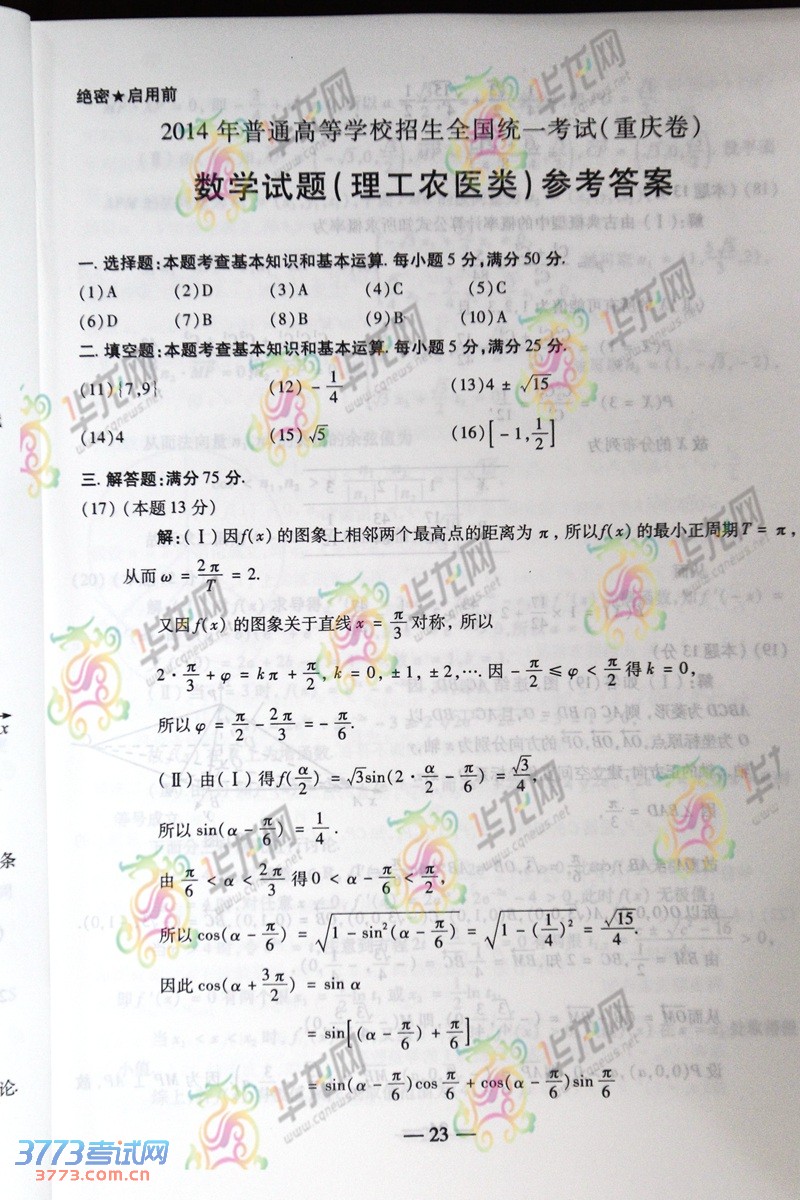 绝密★启用前
2014年普通高等学校招生全国统一考试(重庆卷)
数学试题(理工农医类)参考答案
一.选择题:本题考查基本知识和基本运算.每小题5分,满分50分.
(1)A (2)D (3)A (4)C (5)C
(6)D (7)B (8)B (9)B (10)A
二.填空题:本题考查基本知识和基本运算.每小题5分,满分25分.
(11){7,9} (12) -1/4 (13)4 ± √15
(14)4 (15)√5 (16)[-1,1/2]
三.解答题:满分75分.
(17)(本题13分)
解:(Ⅰ)因f(x)的图象上相邻两个最高点的距离为π,所以f(x)的最小正周期T = π,
从而ω = 2π/T = 2.
又因f(x)的图象关于直线x = π/3对称,所以
2·π/3 + φ = kπ + π/2, k = 0, ±1, ±2,….因 -π/2 ≤ φ < π/2得k = 0,
所以φ = π/2 - 2π/3 = -π/6.
(Ⅱ)由(Ⅰ)得f(α/2) = √3sin(2·α/2 - π/6) = √3/4,
所以sin(α - π/6) = 1/4.
由π/6 < α < 2π/3得0 < α - π/6 < π/2,
所以cos(α - π/6) = √(1 - sin²(α - π/6)) = √(1 - (1/4)²) = √15/4.
因此cos(α + 3π/2) = sin α
= sin[(α - π/6) + π/6]
= sin(α - π/6)cos π/6 + cos(α - π/6)sin π/6
— 23 —
x
条
论
华龙网
www.cqnews.net
3773考试网
3773.com.cn